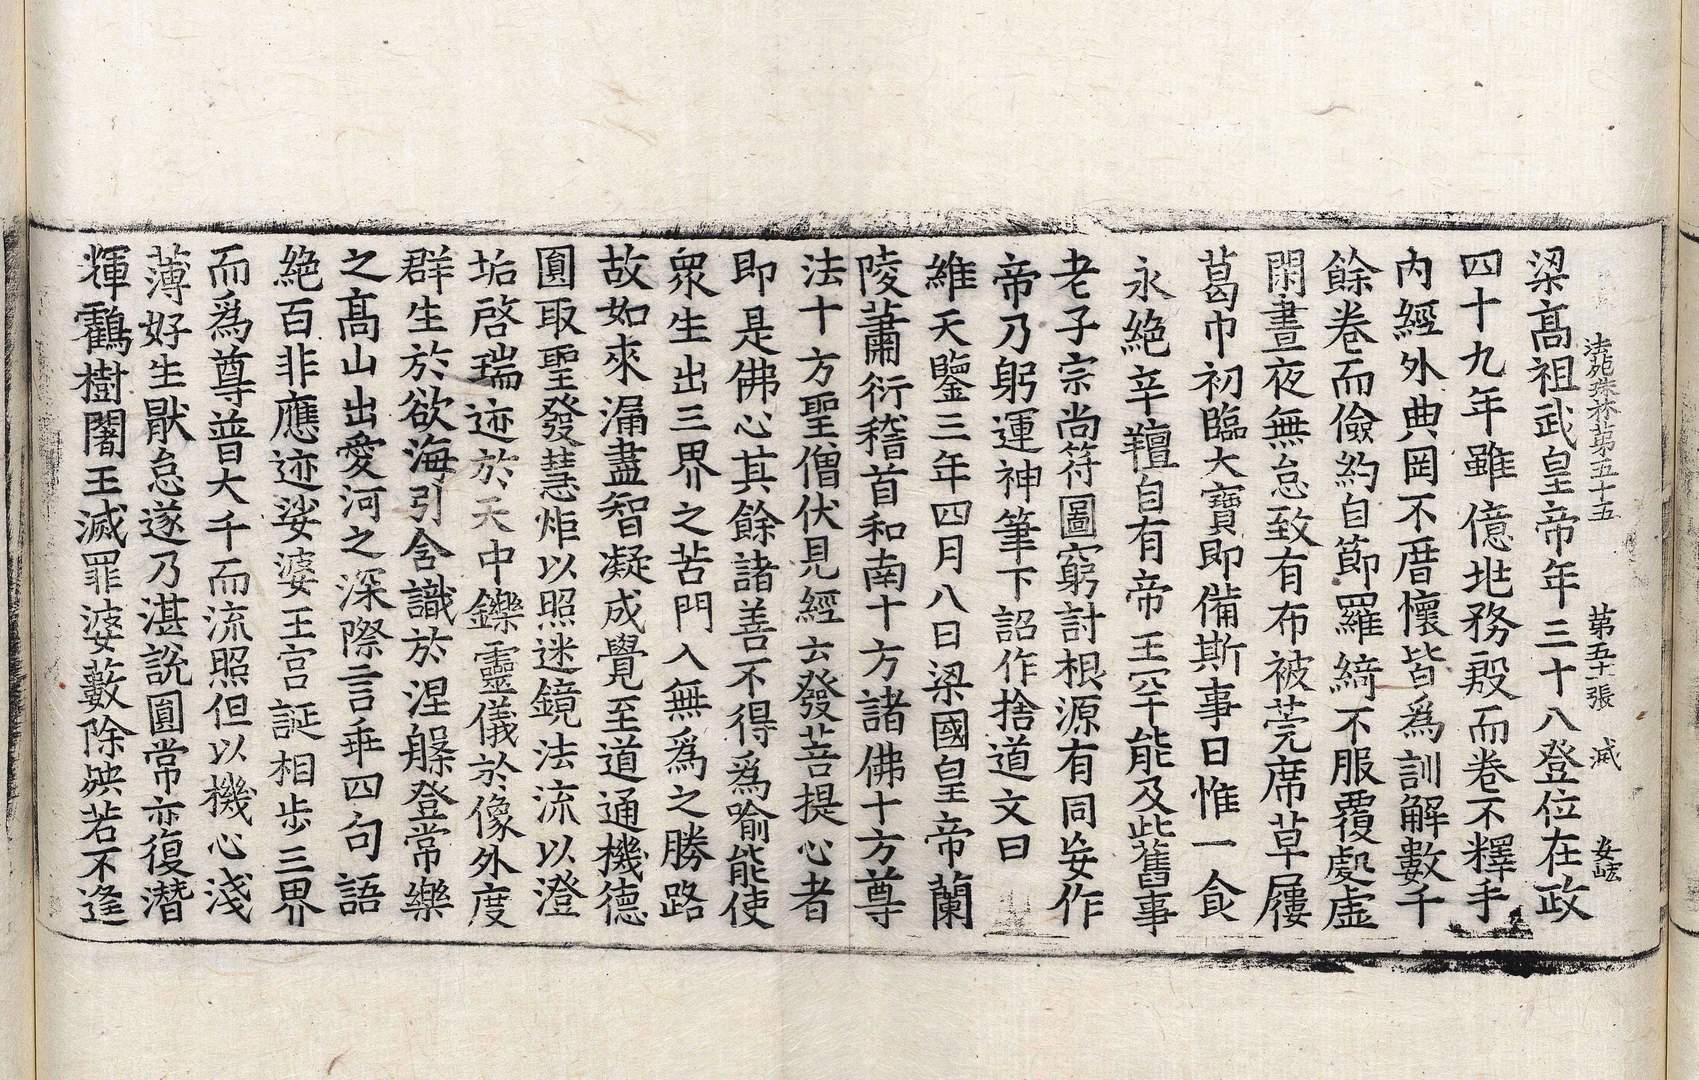 法苑珠林第五十五　第五十張　滅　安岾
梁髙祖武皇帝年三十八登位在政
四十九年雖億兆務殷而卷不釋手
内經外典罔不厝懷皆爲訓解數千
餘卷而儉約自節羅綺不服覆處虛
閑晝夜無怠致有布被莞席草屨
葛巾初臨大寶即備斯事日惟一食
永絶辛羶自有帝王罕能及此舊事
老子宗尚符圖窮討根源有同妄作
帝乃躬運神筆下詔作捨道文曰
維天鑒三年四月八日梁國皇帝蘭
陵蕭衍稽首和南十方諸佛十方尊
法十方聖僧伏見經云發菩提心者
即是佛心其餘諸善不得爲喻能使
衆生出三界之苦門入無爲之勝路
故如來漏盡智凝成覺至道通機德
圎取聖發慧炬以照迷鏡法流以澄
垢啓瑞迹於天中鑠靈儀於像外度
群生於欲海引含識於涅槃登常樂
之髙山出愛河之深際言乖四句語
絶百非應迹娑婆王宮誕相步三界
而爲尊普大千而流照但以機心淺
薄好生猒怠遂乃湛說圎常亦復潛
輝鸖樹闍王滅罪婆藪除殃若不逢